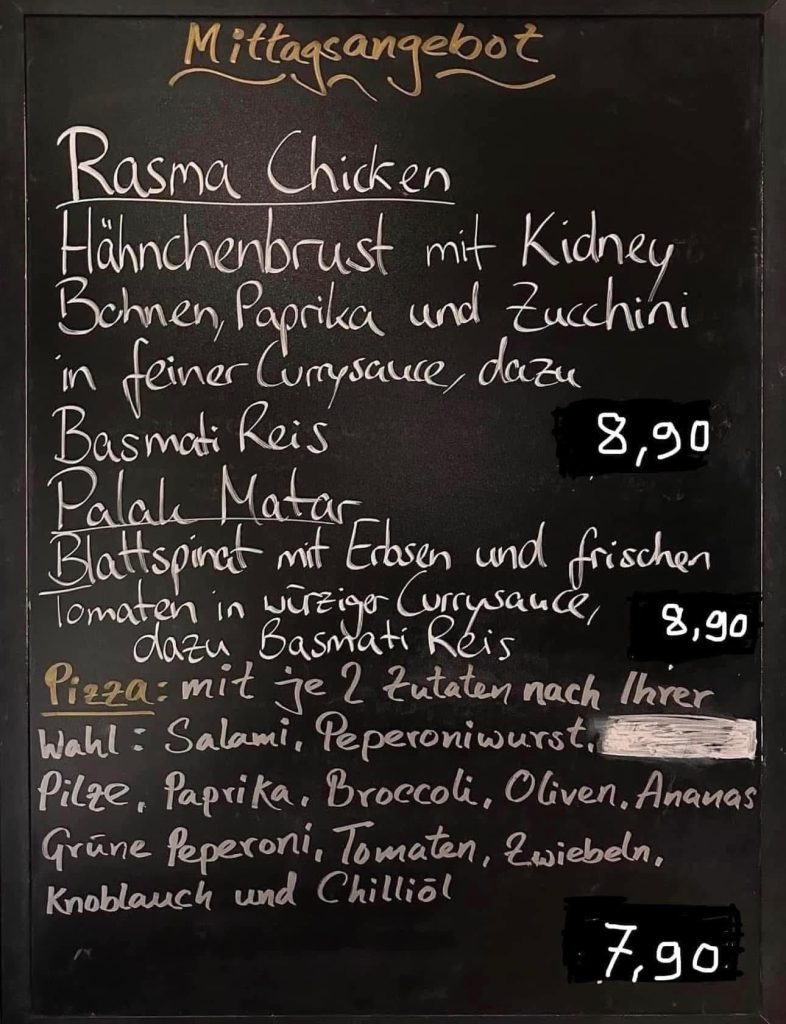 Mittagsangebot
Rasma Chicken
Hähnchenbrust mit Kidney
Bohnen, Paprika und Zucchini
in feiner Currysauce, dazu
Basmati Reis 8,90
Palak Matar
Blattspinat mit Erbsen und frischen
Tomaten in würziger Currysauce,
dazu Basmati Reis 8,90
Pizza: mit je 2 Zutaten nach Ihrer
Wahl: Salami, Peperoniwurst,
Pilze, Paprika, Broccoli, Oliven, Ananas
Grüne Peperoni, Tomaten, Zwiebeln,
Knoblauch und Chilliöl
7,90